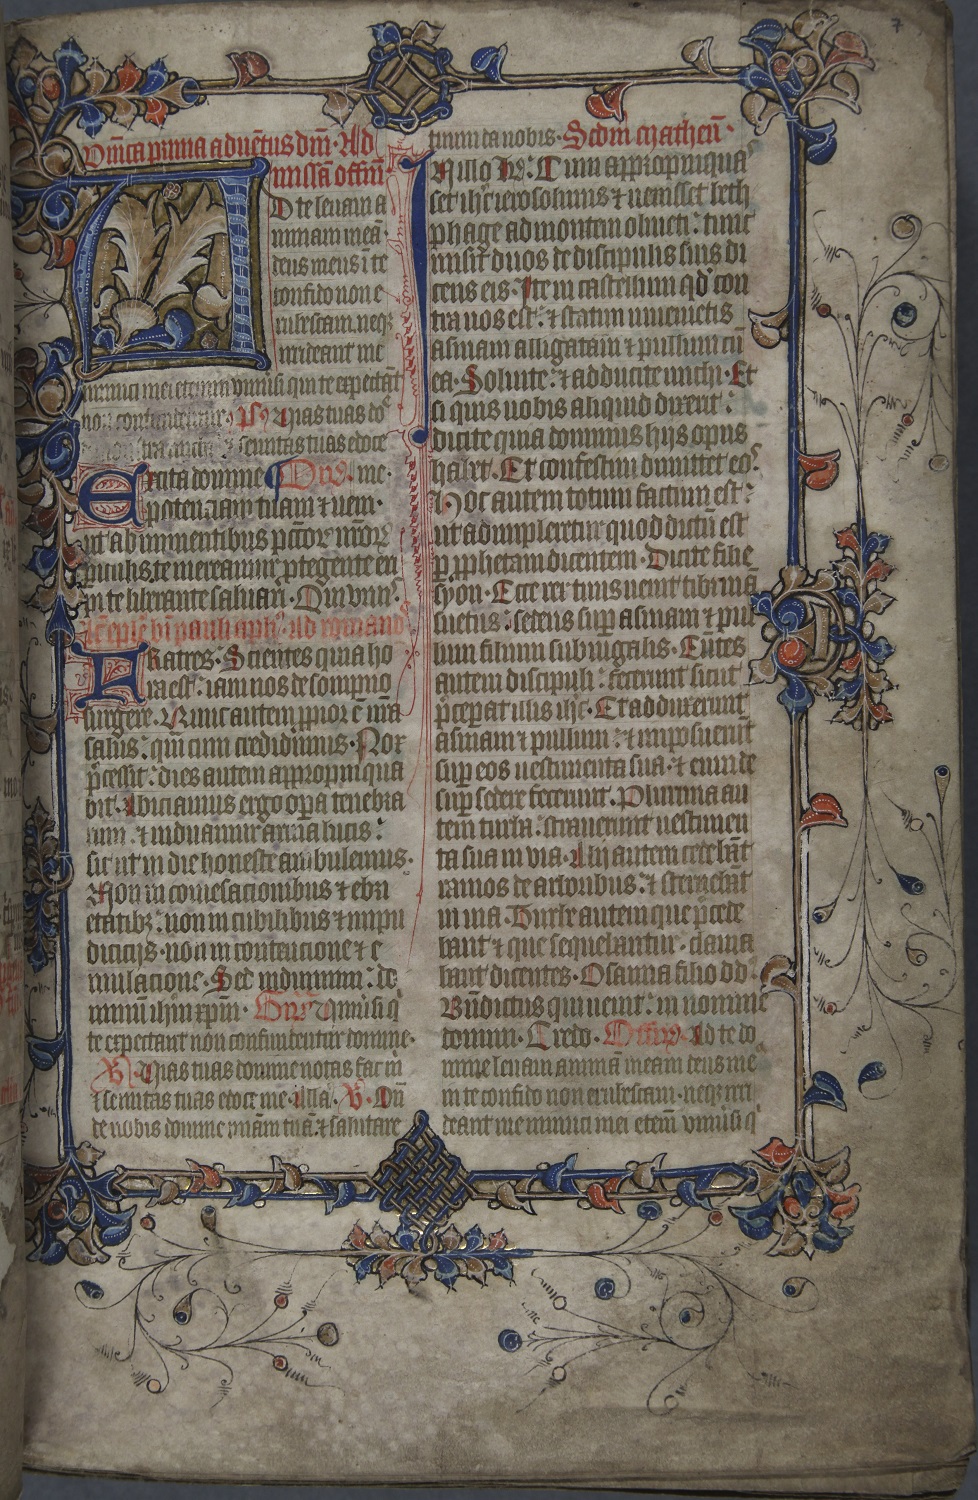 7
Dn̄ica prima aduētus dn̄i. Ad
missā offm̄
AD te leuaui a
nimam meā
deus meus ī te
confido non e
rubescam. neqz
irrideant me
inimici mei etenim vniūsi qui te expectāt
non confundentur. ps̄ Uias tuas dn̄e
semitas tuas edoce
Excita domine Or̄o. me.
potenciam tuam et ueni.
ut ab iminentibus pctōr nrōr
piculis te mereamur ptegente eri
pi te liberante saluari. Qui viuis
lc̄ eplē bī pauli aplī. ad romanos
FRatres. Scientes quia ho
ra est: iam nos de sompno
surgere. Nunc autem ppior ē nrā
salus: qm̄ cum credidimus. Nox
p̄cessit: dies autem appropinqua
bit. Abiciamus ergo opa tenebra
rum. et induamur arma lucis:
sic ut in die honeste ambulemus.
Non in comesacionibus et ebri
etatibz: non in cubilibus et inpu
diciciis. non in contencione et e
mulacione. Sed induimini: do
minū ihm̄ xpm̄. Gr̄. Vniūsi q
te expectant non confundentur domine.
V. Uias tuas domine notas fac m
i semitas tuas edoce me. alla. V. On̄
de nobis domine miām tuā. et salutare
tuum da nobis. Scdm matheū.
IN illo tr̄. Cum appropinqua
set ihc ierosolimis et uenisset beth
phage ad montem oliueti: tunc
misit duos de discipulis suis di
cens eis. Ite in castellum qd con
tra uos est: et statim inuenietis
asinam alligatam et pullum cū
ea. Soluite: et adducite michi. Et
si quis uobis aliquid dixerit:
dicite quia dominus hiis opus
habet. Et confestim dimittet eos.
Hoc autem totum factum est:
ut adimpleretur quod dictū est
p pphetam dicentem. Dicite filie
syon. Ecce rex tuus uenit tibi mā
suetus: sedens sup asinam et pul
lum filium subiugalis. Eūtes
autem discipuli: fecerunt sicut
p̄ceperat illis ihc. Et adduxerunt
asinam et pullum: et imposuerūt
sup eos uestimenta sua. et eum de
sup sedere fecerunt. Plurima au
tem turba: strauerunt uestimen
ta sua in via. Alii autem cedebāt
ramos de arboribus: et sternebāt
in uia. Turbe autem que p̄cede
bant et que sequebantur. clama
bant dicentes. Osanna filio dd.
Bn̄dictus qui uenit: in nomine
domini. Credo. Offm̄. Ad te do
mine leuaui animā meam deus me
in te confido non erubescam. neqz irri
deant me inimici mei etenī vniūsi q